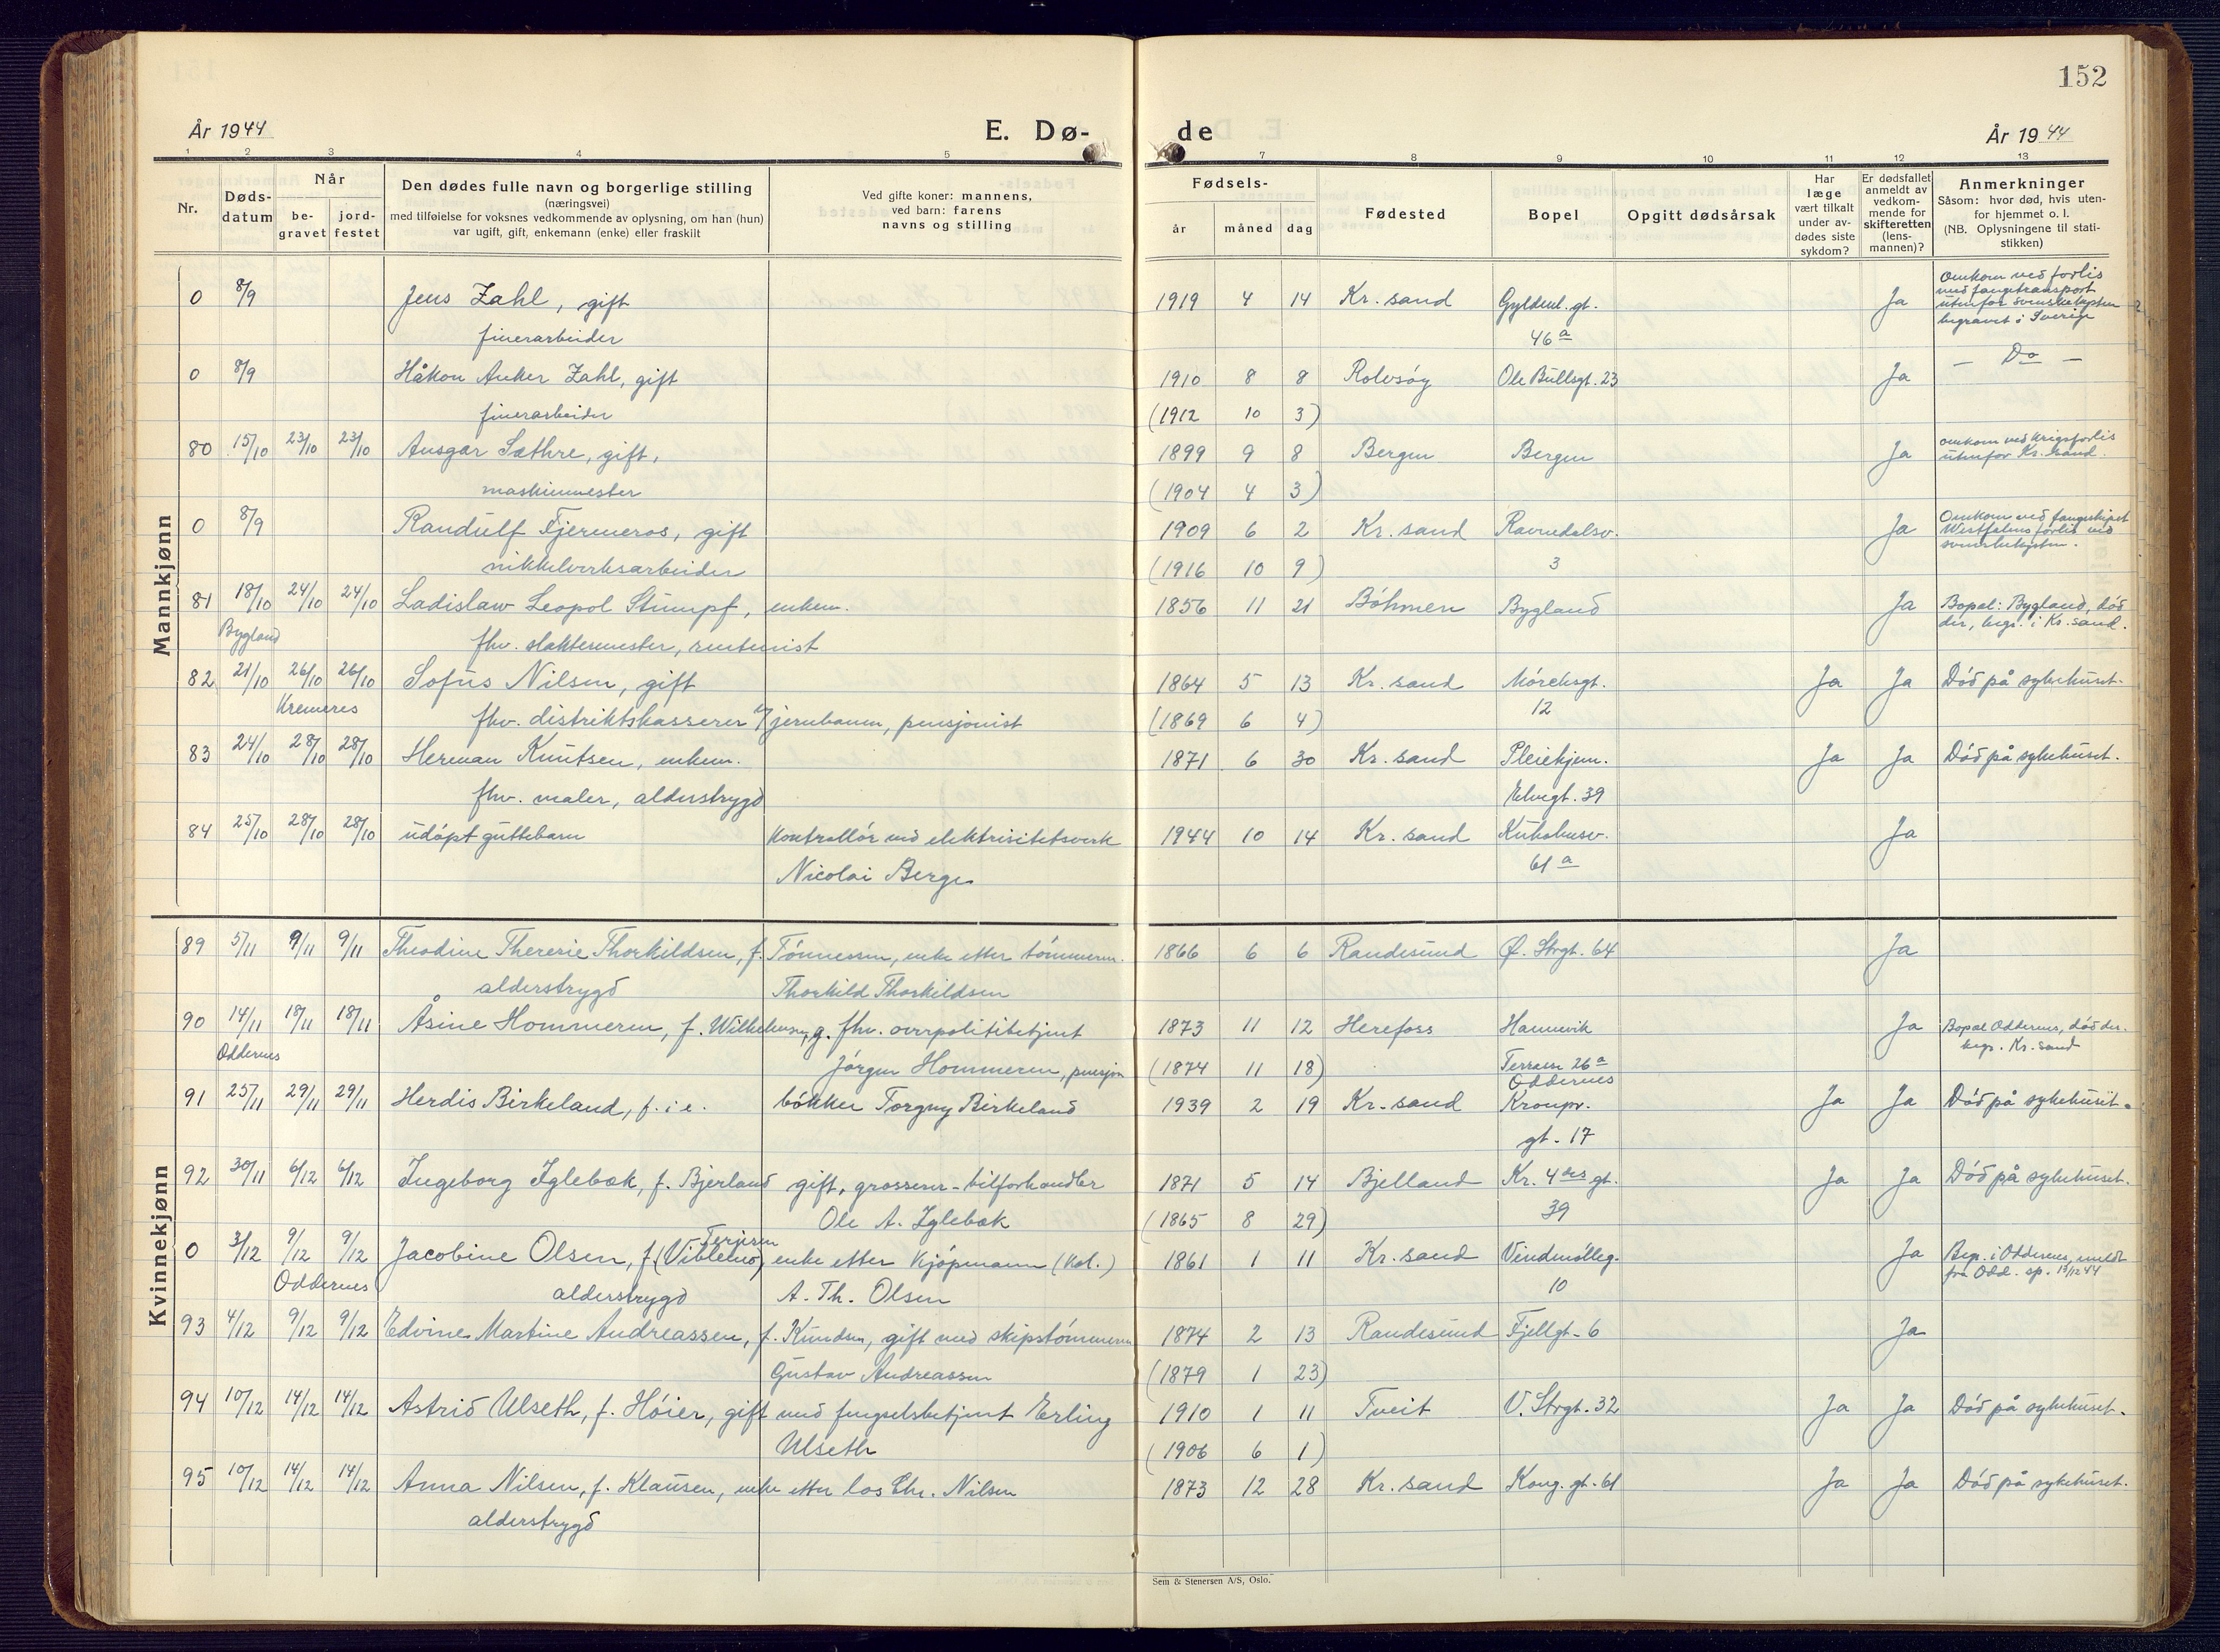 152
År 1944
E. Dø-
de
År 1944
1 2 3 4 5 7 8 9 10 11 12 13
Nr.
Døds-
datum
Når
be-
gravet
jord-
festet
Den dødes fulle navn og borgerlige stilling
(næringsvei)
med tilføielse for voksnes vedkommende av oplysning, om han (hun)
var ugift, gift, enkemann (enke) eller fraskilt
Ved gifte koner: mannens,
ved barn: farens
navns og stilling
Fødsels-
år måned dag
Fødested
Bopel
Opgitt dødsårsak
Har
læge
vært tilkalt
under av-
dødes siste
sykdom?
Er dødsfallet
anmeldt av
vedkom-
mende for
skifteretten
(lens-
mannen)?
Anmerkninger
Såsom: hvor død, hvis uten-
for hjemmet o. l.
(NB. Oplysningene til stati-
stikken)
Mannkjønn
0 8/9 Jens Zahl, gift 1919 4 14 Kr. sand Gyldenl. gt. Ja Omkom ved forlis
med fangetransport
utenfor svenskekysten
begravet i Sverige
finerarbeider 46 a
0 8/9 Håkon Anker Zahl, gift 1910 8 8 Rolvsøy Ole Bullsgt. 23 Ja — Do —
finerarbeider (1912 10 3)
80 15/10 23/10 23/10 Ansgar Sæthre, gift, 1899 9 8 Bergen Bergen Ja omkom ved krigsforlis
utenfor Kr. sand.
maskinmester (1904 4 3)
0 8/9 Randulf Fjermeros, gift 1909 6 2 Kr. sand Ravnedalsv. Ja Omkom ved fangeskipet
Westfalens forlis ved
svenskekysten.
nikkelverksarbeider (1916 10 9) 3
81 18/10 24/10 24/10 Ladislaw Leopol Stumpf, enkem. 1856 11 21 Böhmen Bygland Ja Bopel: Bygland, död
der, begr. i Kr. sand.
Bygland fhv. slaktermester, rentenist
82 21/10 26/10 26/10 Sofus Nilsen, gift 1864 5 13 Kr. sand Möreksgt. Ja Ja Död på sykehuset.
Kremeres fhv. distriktskasserer v/jernbanen, pensjonist (1869 6 4) 12
83 24/10 28/10 28/10 Herman Knutsen, enkem. 1871 6 30 Kr. sand Pleiehjem. Ja Ja Död på sykehuset.
fhv. maler, alderstrygd Elvegt. 39
84 25/10 28/10 28/10 udöpt guttebarn kontrollör ved elektrisitetsverk 1944 10 14 Kr. sand Kuholmsv. Ja
Nicolai Berge 61 a
Kvinnekjønn
89 5/11 9/11 9/11 Theodine Theresie Thorkildsen, f. Tönnessen, enke etter tömmerm. 1866 6 6 Randesund Ø. Strgt. 64 Ja
alderstrygd Thorkild Thorkildsen
90 14/11 18/11 18/11 Åsine Hommeren, f. Wilhelmsen, g. fhv. overpolitibetjent 1873 11 12 Herefoss Hannevik Ja Bopel Oddernes, död der.
begr. Kr. sand
Oddernes Jörgen Hommeren, pensjon (1874 11 18) Terrasse 26 a
Oddernes
91 25/11 29/11 29/11 Herdis Birkeland, f. i e. bökker Torgny Birkeland 1939 2 19 Kr. sand Kronpr. Ja Ja Död på sykehuset.
gt. 17
92 30/11 6/12 6/12 Ingeborg Iglebæk, f. Bjerland gift, grosserer - bilforhandler 1871 5 14 Bjelland Kr. 4des gt. Ja Ja Död på sykehuset.
Ole A. Iglebæk (1865 8 29) 39
Terjesen
0 3/12 9/12 9/12 Jacobine Olsen, f. (Viblemo) enke etter kjöpmann (kol.) 1861 1 11 Kr. sand Vindmölleg. Ja Begr. i Oddernes, meldt
fra Odd. sp. 13/12 44
Oddernes alderstrygd A. Th. Olsen 10
93 4/12 9/12 9/12 Edvine Martine Andreassen, f. Knudsen, gift med skipstömmerm 1874 2 13 Randesund Fjellgt. 6 Ja
Gustav Andreassen (1879 1 23)
94 10/12 14/12 14/12 Astrid Ulseth, f. Höier, gift med fengselsbetjent Erling 1910 1 11 Tveit V. Strgt. 32 Ja Ja Död på sykehuset.
Ulseth (1906 6 1)
95 10/12 14/12 14/12 Anna Nilsen, f. Klausen, enke etter los Chr. Nilsen 1873 12 28 Kr. sand Kong. gt. 61 Ja Ja Död på sykehuset.
alderstrygd
Sem & Stenersen A/S, Oslo.